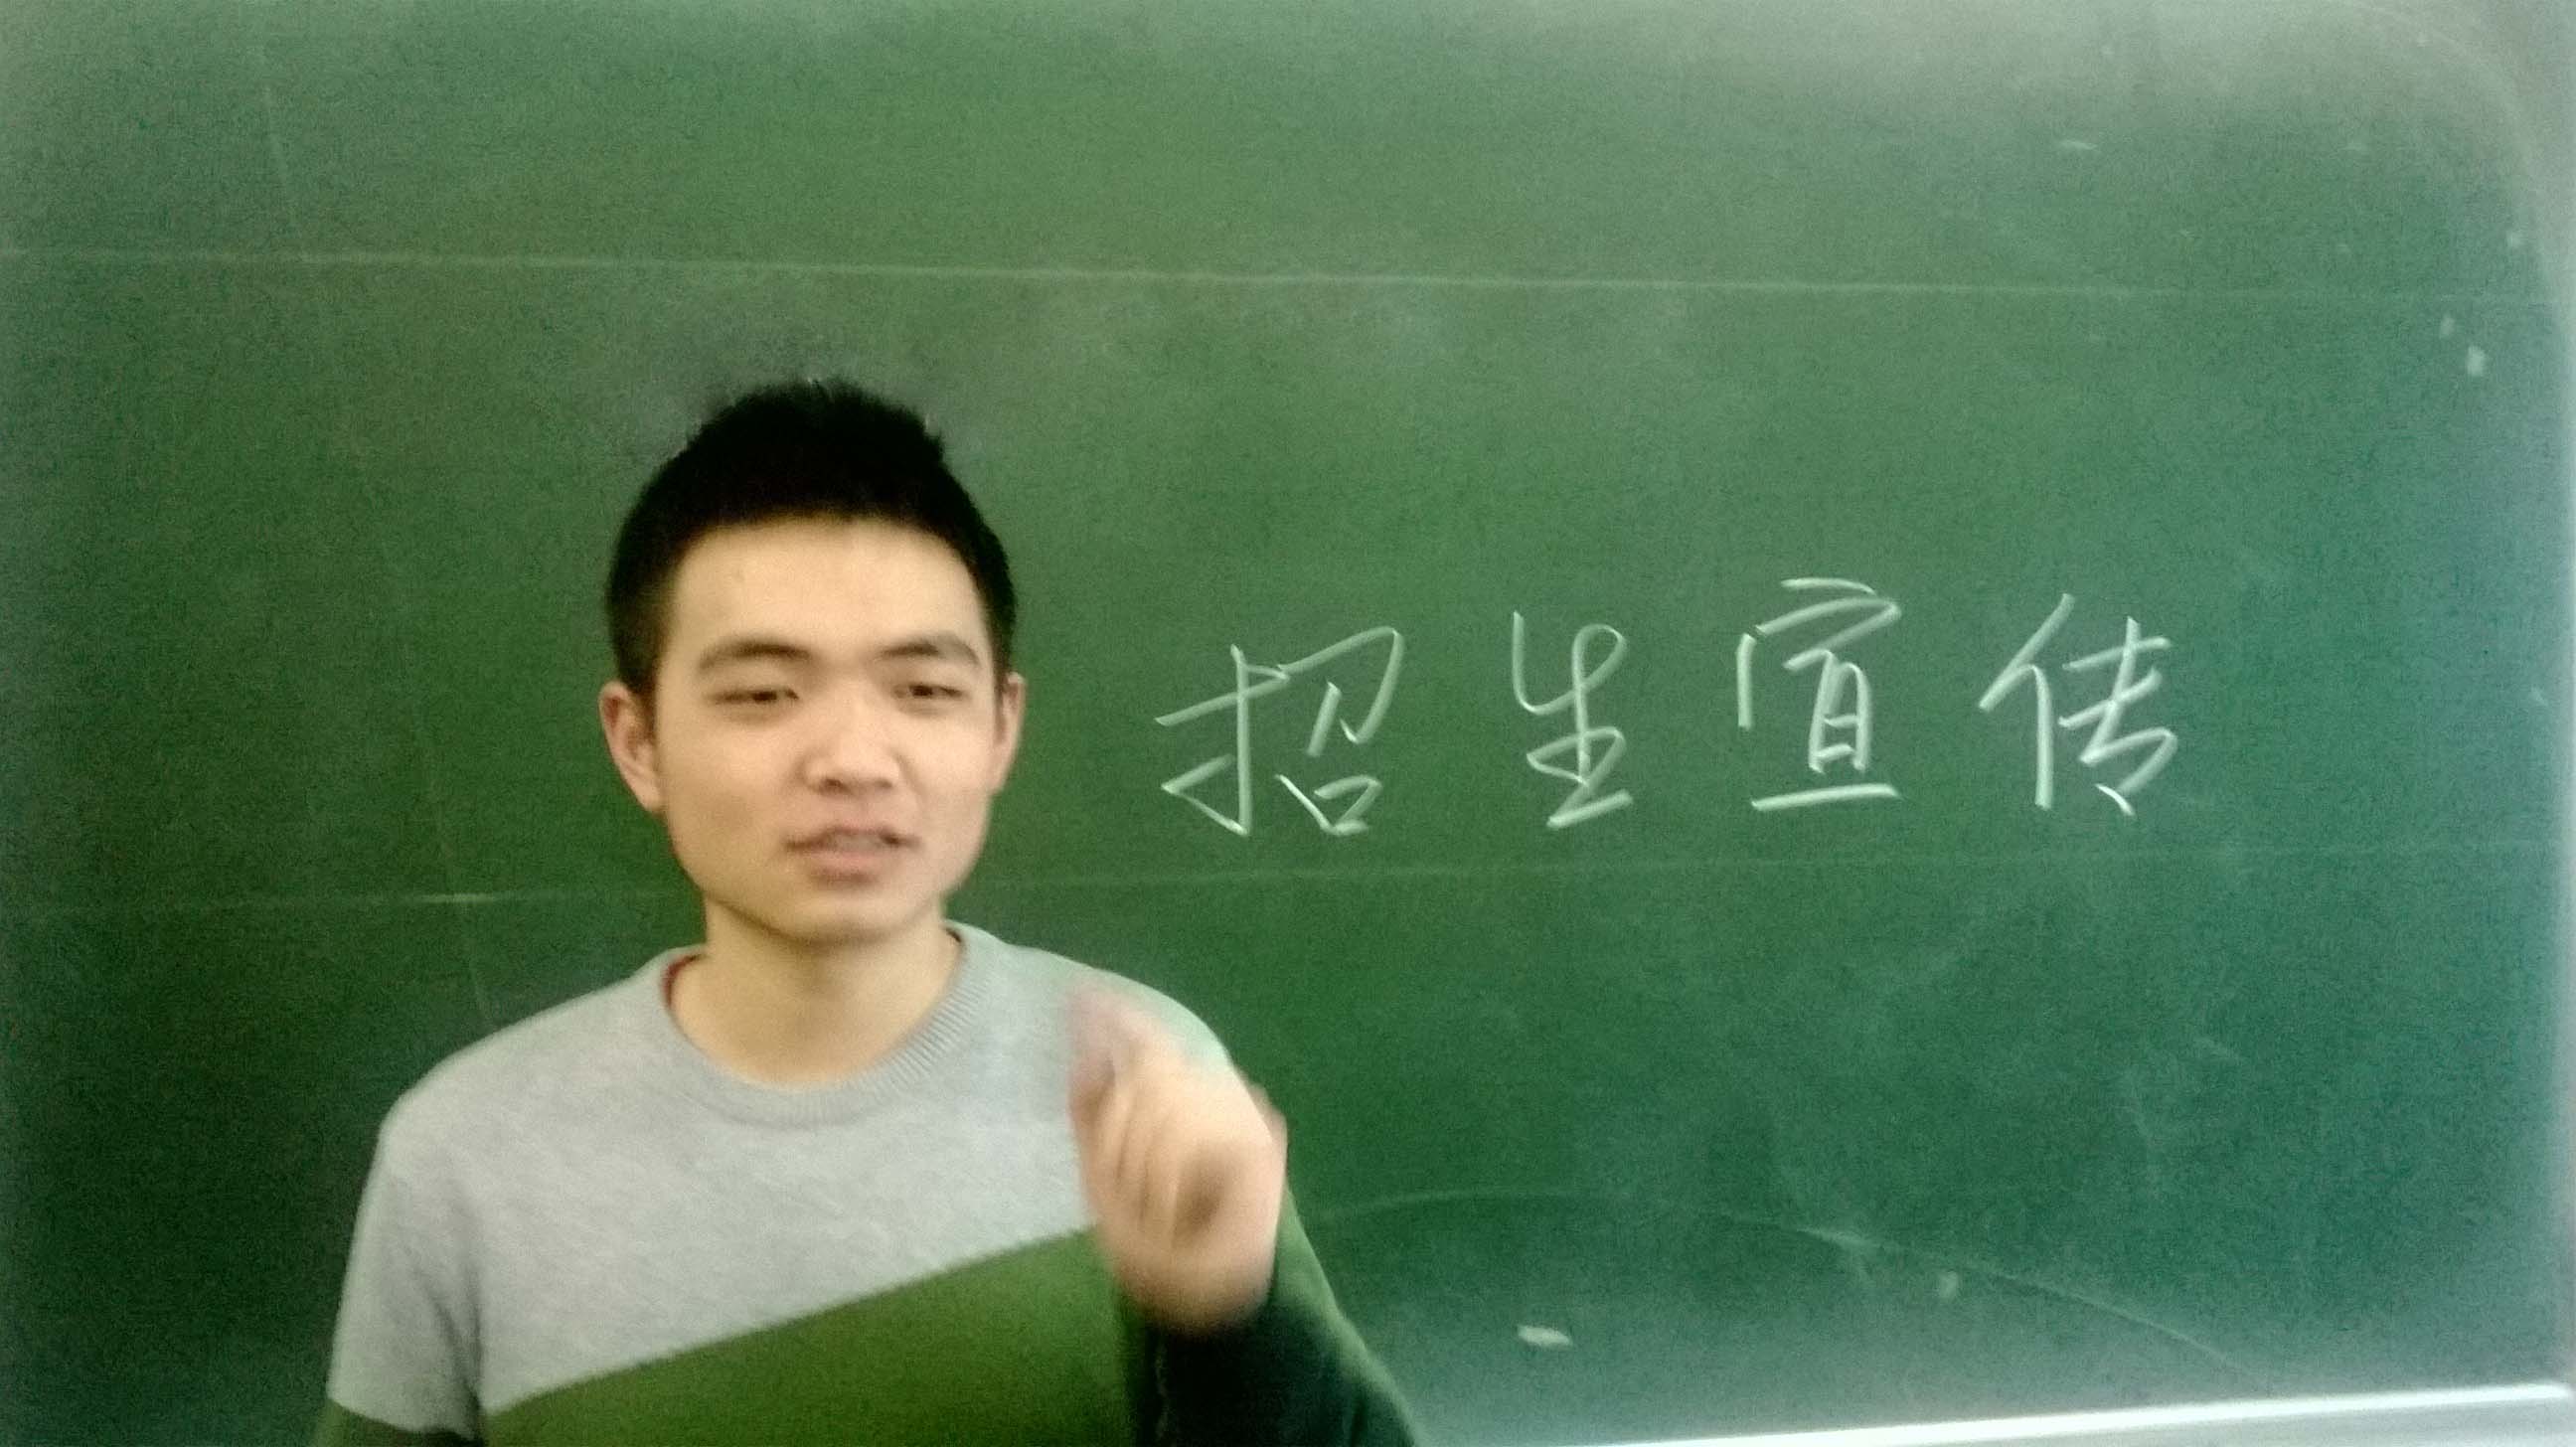 招生宣传